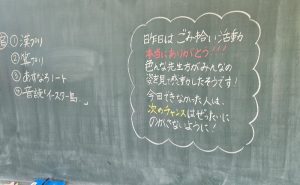 宿
①漢プリ
②算プリ
③あすなろノート
④音読「イースター島…
昨日は ごみ拾い活動
本当にありがとう!!!
色んな先生方がみんなの
姿を見て感動したそうです!
今日できなかった人は、
次のチャンスはぜったいに
のがさないように!